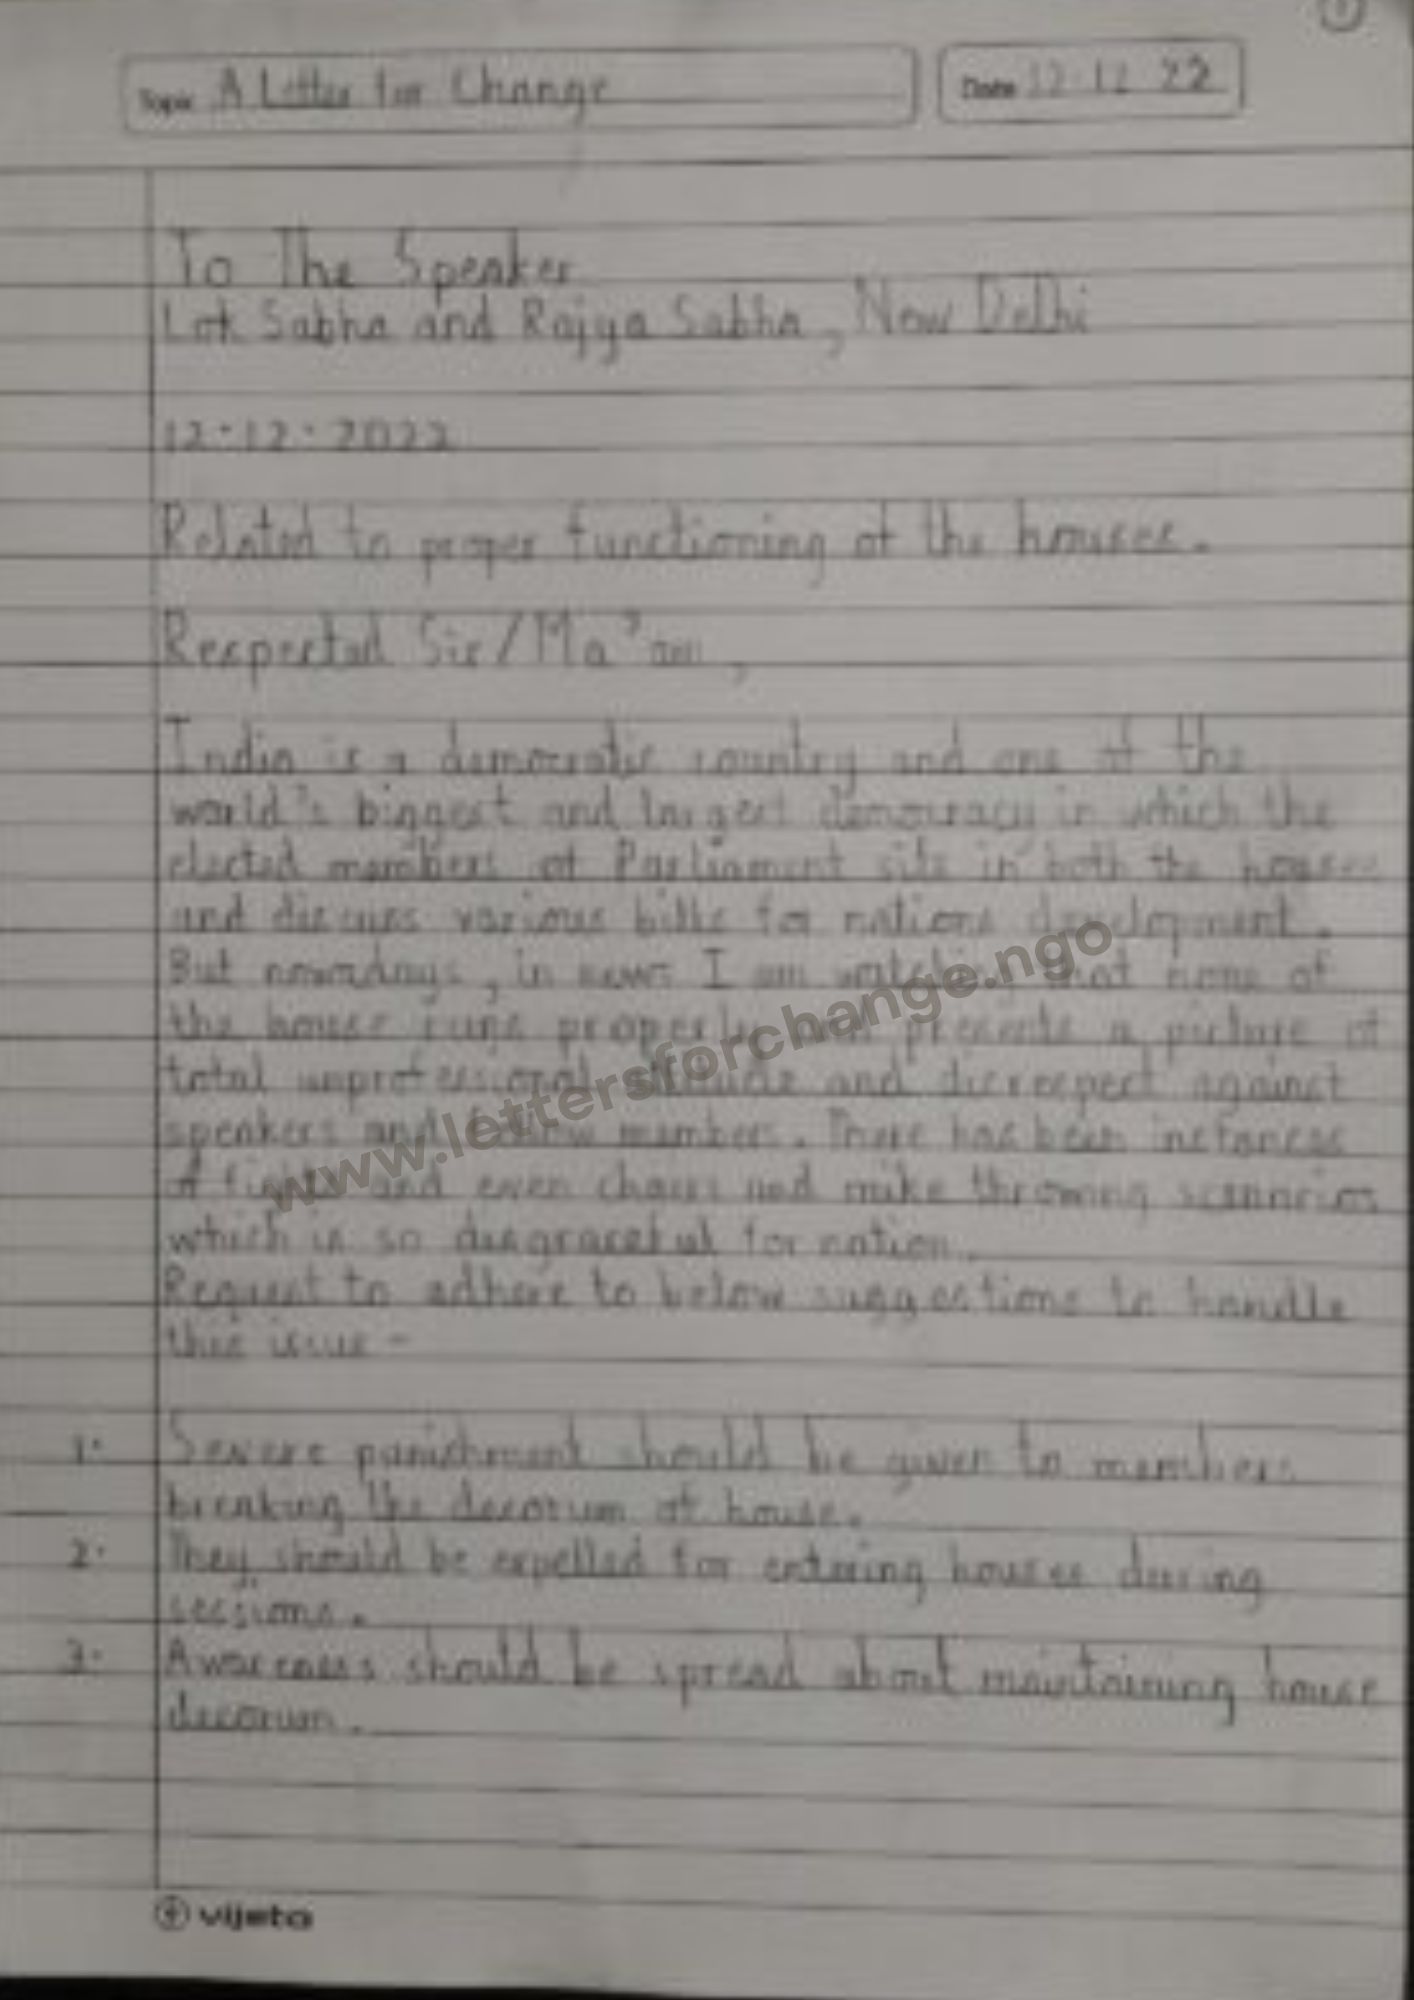 1
Topic A Letter for Change Date 12.12.22
To The Speaker
Lok Sabha and Rajya Sabha, New Delhi
12.12.2022
Related to proper functioning of the houses.
Respected Sir/Ma'am,
India is a democratic country and one of the
world's biggest and largest democracy in which the
elected members of Parliament sits in both the houses
and discuss various bills for nations development.
But nowadays, in news I am watching that none of
the house runs properly and presents a picture of
total unprofessional attitude and disrespect against
speakers and fellow members. There has been instances
of fights and even chairs and mike throwing scenarios
which is so disgraceful for nation.
Request to adhere to below suggestions to handle
this issue -
1. Severe punishment should be given to members
breaking the decorum of house.
2. They should be expelled for entering houses during
sessions.
3. Awareness should be spread about maintaining house
decorum.
www.lettersforchange.ngo
vijeta